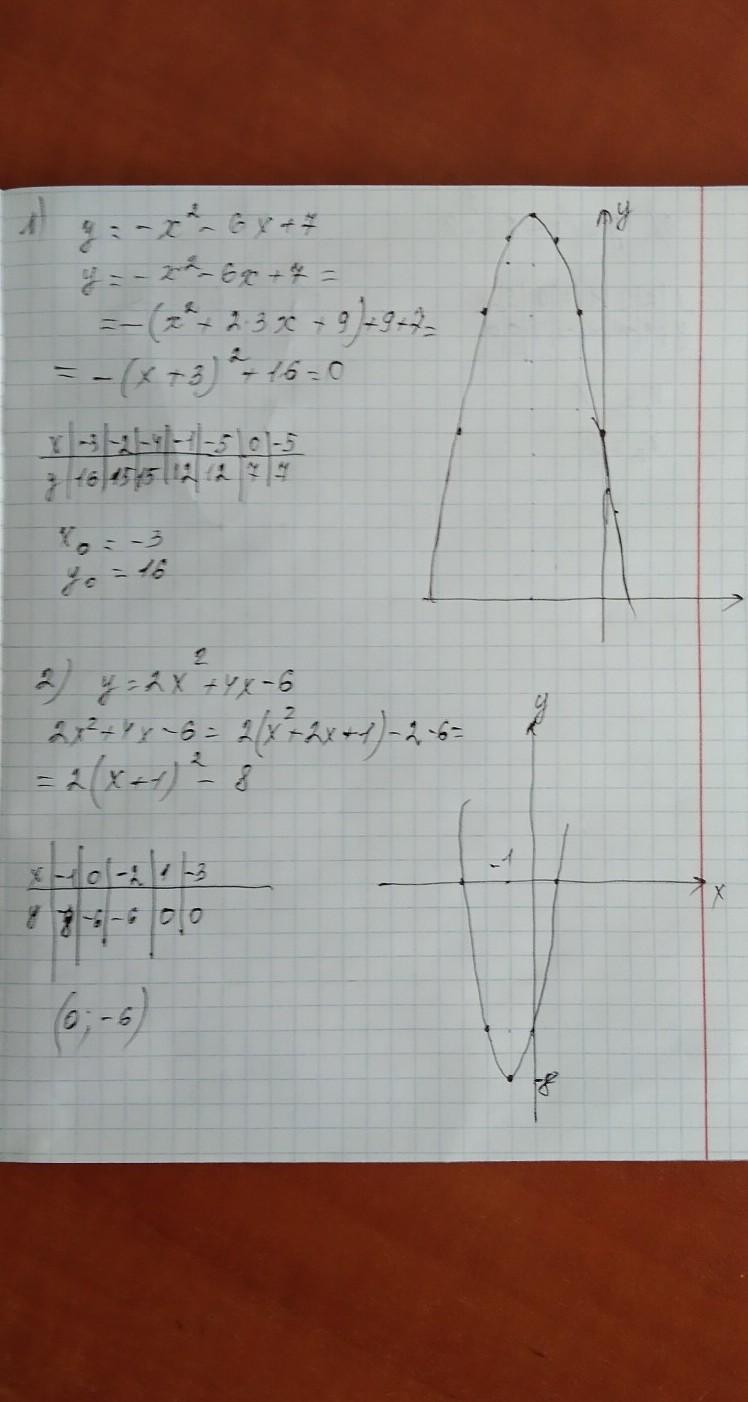 1) y = -x² - 6x + 7
y = -x² - 6x + 7 =
= -(x² + 2·3x + 9) + 9 + 7 =
= -(x + 3)² + 16 = 0
x | -3 | -2 | -4 | -1 | -5 | 0 | -5
y | 16 | 15 | 15 | 12 | 12 | 7 | 7
x₀ = -3
y₀ = 16
y
2) y = 2x² + 4x - 6
2x² + 4x - 6 = 2(x² + 2x + 1) - 2 - 6 =
= 2(x + 1)² - 8
x | -1 | 0 | -2 | 1 | -3
y | -8 | -6 | -6 | 0 | 0
(0; -6)
y
-1
x
-8